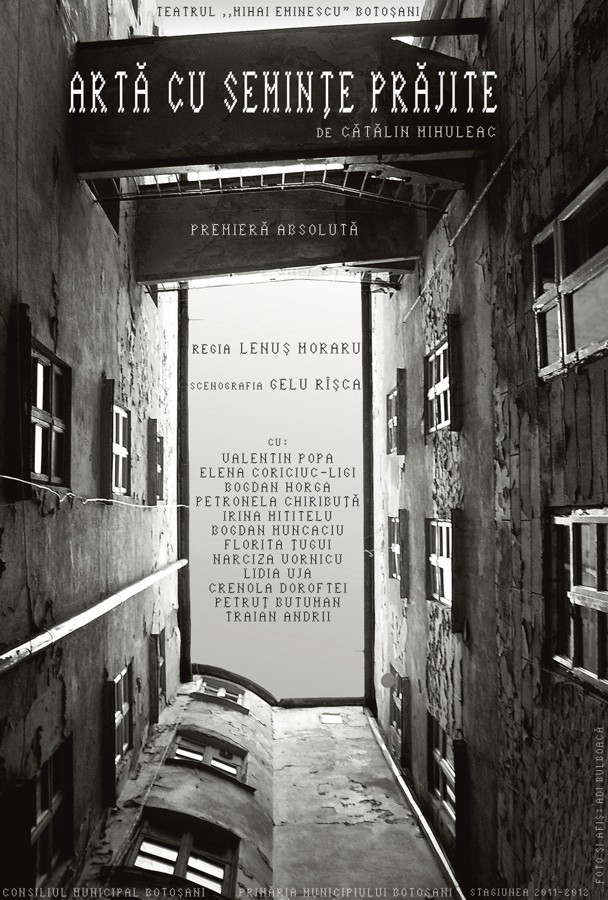 TEATRUL ,,MIHAI EMINESCU" BOTOȘANI
ARTĂ CU SEMINȚE PRĂJITE
DE CĂTĂLIN MIHULEAC
PREMIERĂ ABSOLUTĂ
REGIA LENUȘ MORARU
SCENOGRAFIA GELU RÎȘCA
CU:
VALENTIN POPA
ELENA CORICIUC-LIGI
BOGDAN HORGA
PETRONELA CHIRIBUȚĂ
IRINA MITITELU
BOGDAN MUNCACIU
FLORITA ȚUGUI
NARCIZA VORNICU
LIDIA UJA
CRENOLA DOROFTEI
PETRUȚ BUTUMAN
TRAIAN ANDRII
FOTO ȘI AFIȘ: ADI BULBOACĂ
CONSILIUL MUNICIPAL BOTOȘANI
PRIMĂRIA MUNICIPIULUI BOTOȘANI
STAGIUNEA 2011-2012